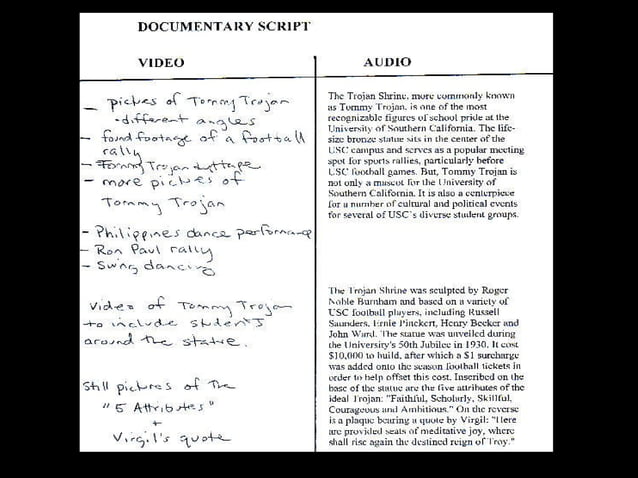 DOCUMENTARY SCRIPT
VIDEO
AUDIO
- pictures of Tommy Trojan
- different angles
- found footage of a football
rally
- Tommy Trojan
- more pictures of
Tommy Trojan
- Philippines dance performance
- Ron Paul rally
- Swing dancing
Video of Tommy Trojan
to include students
around the statue.
Still pictures of the
"5 Attributes"
+
Virgil's quote
The Trojan Shrine, more commonly known
as Tommy Trojan, is one of the most
recognizable figures of school pride at the
University of Southern California. The life-
size bronze statue sits in the center of the
USC campus and serves as a popular meeting
spot for sports rallies, particularly before
USC football games. But, Tommy Trojan is
not only a mascot for the University of
Southern California. It is also a centerpiece
for a number of cultural and political events
for several of USC's diverse student groups.
The Trojan Shrine was sculpted by Roger
Noble Burnham and based on a variety of
USC football players, including Russell
Saunders, Ernie Pinckert, Henry Becker and
John Ward. The statue was unveiled during
the University's 50th Jubilee in 1930. It cost
$10,000 to build, after which a $1 surcharge
was added onto the season football tickets in
order to help offset this cost. Inscribed on the
base of the statue are the five attributes of the
ideal Trojan: "Faithful, Scholarly, Skillful,
Courageous and Ambitious." On the reverse
is a plaque bearing a quote by Virgil: "Here
are provided seats of meditative joy, where
shall rise again the destined reign of Troy."